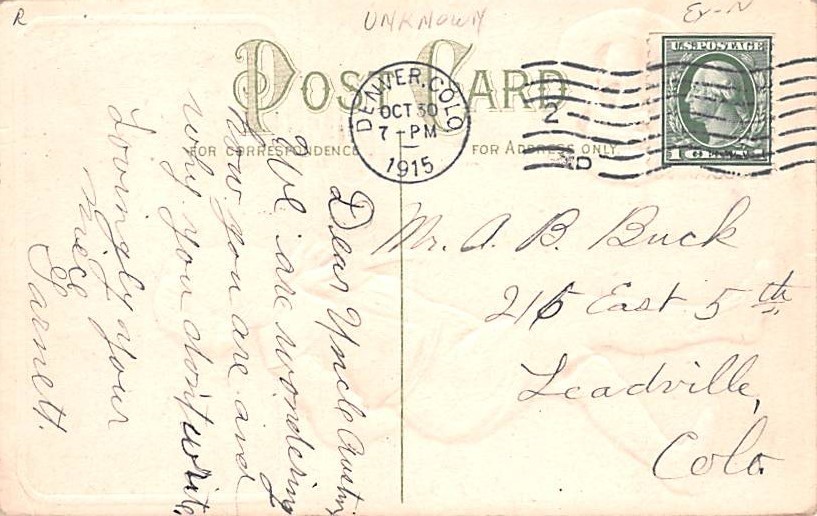 R
UNKNOWN
Ex-N
POST CARD
FOR CORRESPONDENCE
FOR ADDRESS ONLY
DENVER, COLO
OCT 30
7-PM
1915
2
D
U.S. POSTAGE
1 CENT 1
Dear Uncle Austin,
We are wondering
how you are and
why you don't write,
Lovingly your
niece
Garnett.
Mr. A. B. Buck
215 East 5th
Leadville,
Colo.